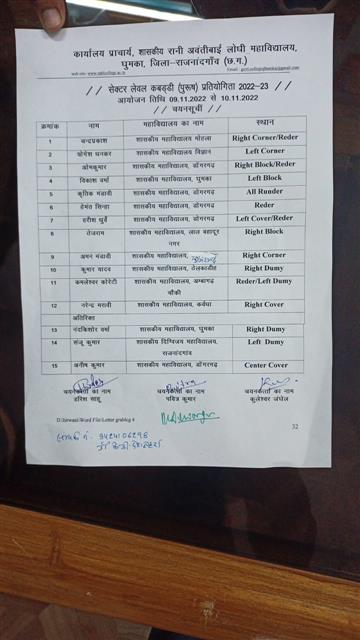 कार्यालय प्राचार्य, शासकीय रानी अवंतीबाई लोधी महाविद्यालय,
घुमका, जिला–राजनांदगाँव (छ.ग.)
// सेक्टर लेवल कबड्डी (पुरूष) प्रतियोगिता 2022–23 //
आयोजन तिथि 09.11.2022 से 10.11.2022
// चयनसूची //
क्रमांक नाम महाविद्यालय का नाम स्थान
1 चन्द्रप्रकाश शासकीय महाविद्यालय मोहला Right Corner/Reder
2 योगेश धनकर शासकीय महाविद्यालय विज्ञान Left Corner
3 ओमकुमार शासकीय महाविद्यालय, डोंगरगढ़ Right Block/Reder
4 विकाश वर्मा शासकीय महाविद्यालय, घुमका Left Block
5 कृतिक मंडावी शासकीय महाविद्यालय, डोंगरगढ़ All Runder
6 हेमंत सिन्हा शासकीय महाविद्यालय, डोंगरगढ़ Reder
7 हरीश धुर्वे शासकीय महाविद्यालय, डोंगरगढ़ Left Cover/Reder
8 तेजराम शासकीय महाविद्यालय, लाल बहादूर Right Block
नगर
9 अमन मंडावी शासकीय महाविद्यालय, Right Corner
10 कुमार यादव शासकीय महाविद्यालय, ठेलकाडीह Right Dumy
11 कमलेश्वर कोरेटी शासकीय महाविद्यालय, अम्बागढ़ Reder/Left Dumy
चौकी
12 नरेन्द्र मरावी शासकीय महाविद्यालय, कवर्धा Right Cover
अतिरिक्त
13 नंदकिशोर वर्मा शासकीय महाविद्यालय, घुमका Right Dumy
14 संजू कुमार शासकीय दिग्विजय महाविद्यालय, Left Dumy
राजनांदगांव
15 अनीष कुमार शासकीय महाविद्यालय, डोंगरगढ़ Center Cover
चयनकर्ता का नाम चयनकर्ता का नाम चयनकर्ता का नाम
हरिश साहू पवित्र कुमार कुलेश्वर जंघेल
D:/farwani/Word File/Letter grahlog 4
32